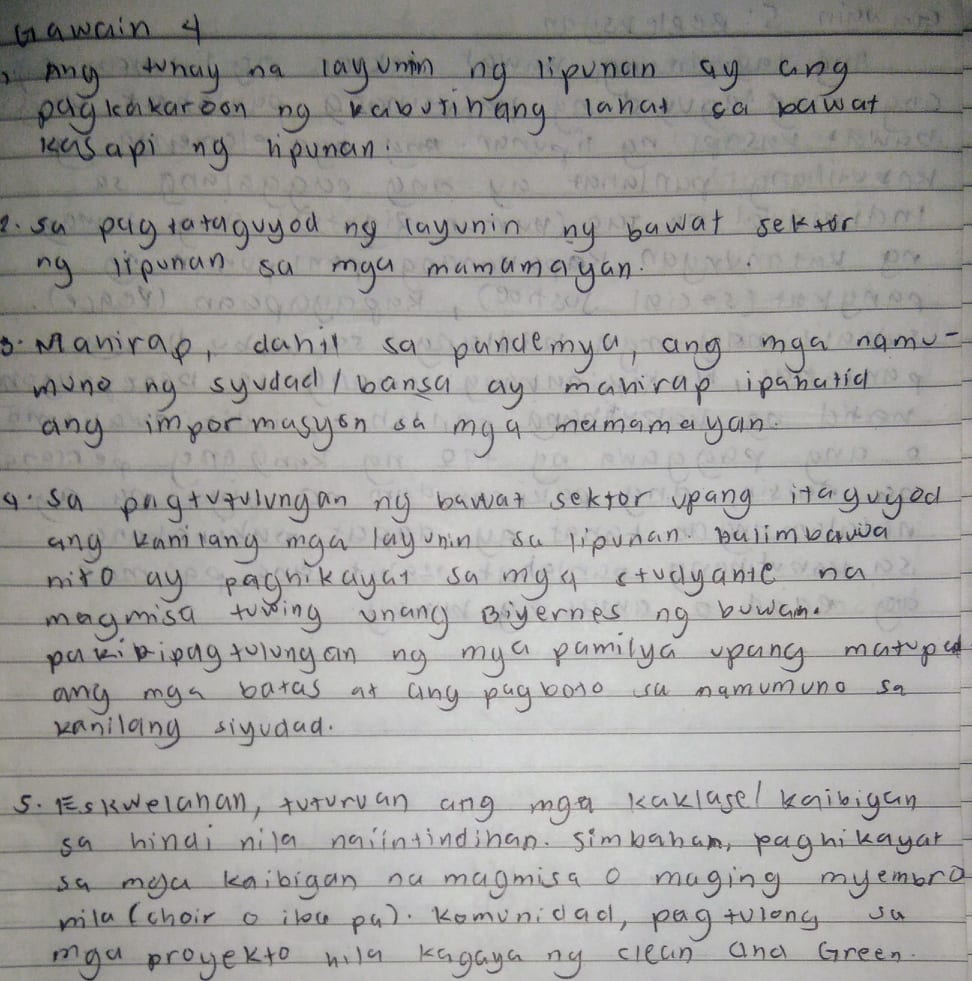 Gawain 4
, Ang tunay na layunin ng lipunan ay ang
pagkakaroon ng kabutihang lahat sa bawat
kasapi ng lipunan.
2. Sa pagtataguyod ng layunin ng bawat sektor
ng lipunan sa mga mamamayan.
3. Mahirap, dahil sa pandemya, ang mga namu-
muno ng syudad/bansa ay mahirap ipahatid
ang impormasyon sa mga mamamayan.
4. Sa pagtutulungan ng bawat sektor upang itaguyod
ang kanilang mga layunin sa lipunan. Halimbawa
nito ay paghikayat sa mga studyante na
magmisa tuwing unang Biyernes ng buwan.
pakikipagtulungan ng mga pamilya upang matupad
ang mga batas at ang pagboto sa namumuno sa
kanilang siyudad.
5. Eskwelahan, tuturuan ang mga kaklase/kaibigan
sa hindi nila naiintindihan. Simbahan, paghikayat
sa mga kaibigan na magmisa o maging myembro
nila (choir o iba pa). Komunidad, pagtulong sa
mga proyekto nila kagaya ng clean and Green.